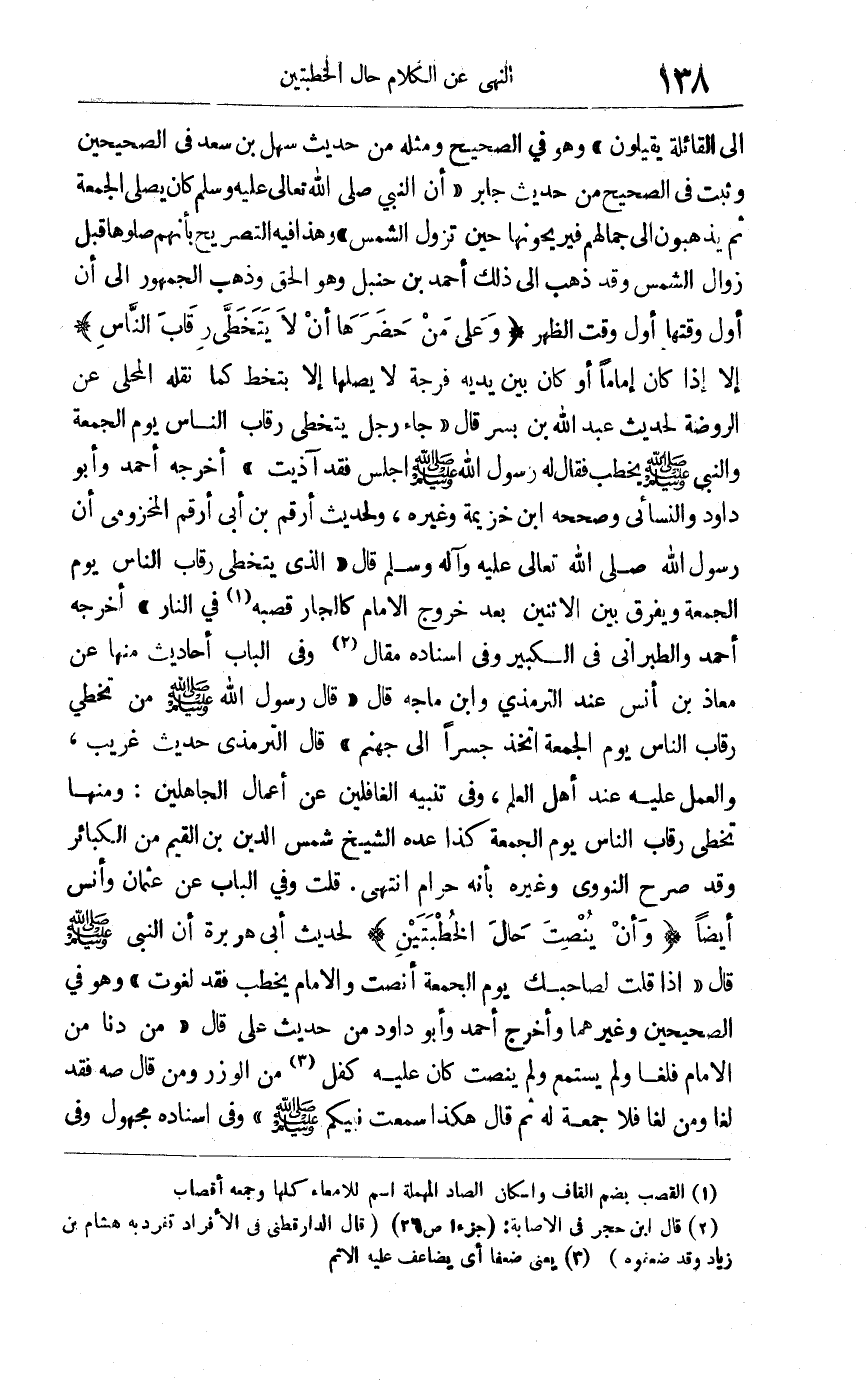 ١٣٨ النهى عن الكلام حال الخطبتين
الى القائلة يقيلون » وهو في الصحيح ومثله من حديث سهل بن سعد فى الصحيحين
وثبت فى الصحيح من حديث جابر « أن النبي صلى الله تعالى عليه وسلم كان يصلى الجمعة
ثم يذهبون الى جمالهم فيريحونها حين تزول الشمس » وهذا فيه التصريح بأنهم صلوها قبل
زوال الشمس وقد ذهب الى ذلك أحمد بن حنبل وهو الحق وذهب الجمهور الى أن
أول وقتها أول وقت الظهر ﴿ وَعَلى مَنْ حَضَرَهَا أنْ لاَ يَتَخَطَّى رِقَابَ النَّاسِ ﴾
إلا إذا كان إماماً أو كان بين يديه فرجة لا يصلها إلا بتخط كما نقله المحلى عن
الروضة لحديث عبد الله بن بسر قال « جاء رجل يتخطى رقاب النـاس يوم الجمعة
والنبي ﷺ يخطب فقال له رسول الله ﷺ اجلس فقد آذيت » أخرجه أحمد وأبو
داود والنسائى وصححه ابن خزيمة وغيره ، ولحديث أرقم بن أبى أرقم المخزومى أن
رسول الله صـلى الله تعالى عليه وآله وسـلم قال « الذى يتخطى رقاب الناس يوم
الجمعة ويفرق بين الاثنين بعد خروج الامام كالجار قصبه (١) في النار » أخرجه
أحمد والطبرانى فى الـكبير وفى اسناده مقال (٢) وفى الباب أحاديث منها عن
معاذ بن أنس عند الترمذي وابن ماجه قال « قال رسول الله ﷺ من تخطي
رقاب الناس يوم الجمعة اتخذ جسراً الى جهنم » قال الترمذى حديث غريب ،
والعمل عليـه عند أهل العلم ، وفى تنبيه الغافلين عن أعمال الجاهلين : ومنهـا
تخطى رقاب الناس يوم الجمعة كذا عده الشيخ شمس الدين بن القيم من الكبائر
وقد صرح النووى وغيره بأنه حرام انتهى . قلت وفي الباب عن عثمان وأنس
أيضاً ﴿ وَأنْ يُنْصِتَ حَالَ الخُطْبَتَيْنِ ﴾ لحديث أبى هريرة أن النبى ﷺ
قال « اذا قلت لصاحبـك يوم الجمعة أنصت والامام يخطب فقد لغوت » وهو في
الصحيحين وغيرهما وأخرج أحمد وأبو داود من حديث على قال « من دنا من
الامام فلغـا ولم يستمع ولم ينصت كان عليـه كفل (٣) من الوزر ومن قال صه فقد
لغا ومن لغا فلا جمعـة له ثم قال هكذا سمعت نبيكم ﷺ » وفى اسناده مجهول وفى
(١) القصب بضم القاف واسكان الصاد المهملة اسم للامعاء كلها وجمعه أقصاب
(٢) قال ابن حجر فى الاصابة : (جزء١ ص٢٦) ( قال الدارقطنى فى الأفراد تفرد به هشام بن
زياد وقد ضعفوه ) (٣) يعنى ضعفا أى يضاعف عليه الاثم